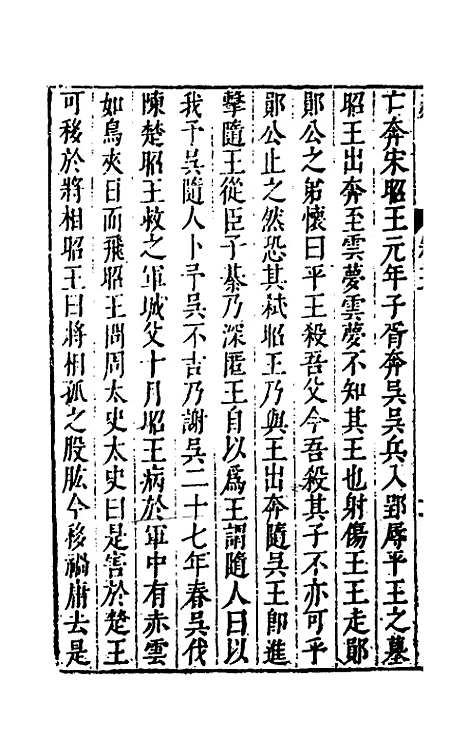 亡奔宋昭王元年子胥奔吳吳兵入郢辱平王之墓
昭王出奔至雲夢雲夢不知其王也射傷王王走鄖
鄖公之弟懷曰平王殺吾父今吾殺其子不亦可乎
鄖公止之然恐其弒昭王乃與王出奔隨吳王即進
擊隨王從臣子綦乃深匿王自以爲王謂隨人曰以
我予吳隨人卜予吳不吉乃謝吳二十七年春吳伐
陳楚昭王救之軍城父十月昭王病於軍中有赤雲
如鳥夾日而飛昭王問周太史太史曰是害於楚王
可移於將相昭王曰將相孤之股肱今移禍庸去是